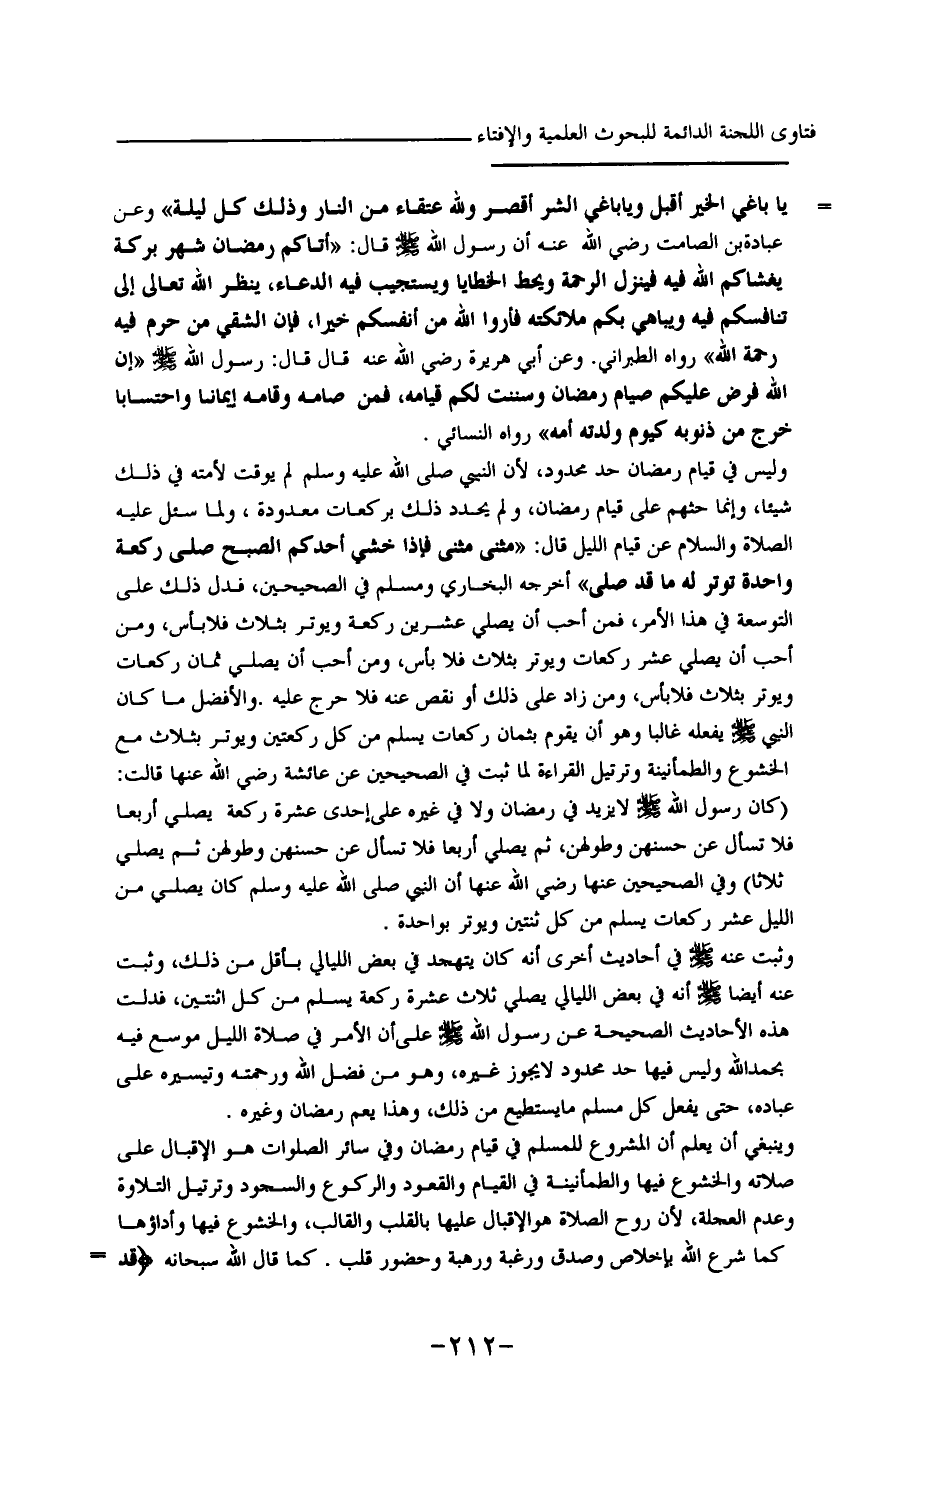 فتاوى اللجنة الدائمة للبحوث العلمية والإفتاء
= يا باغي الخير أقبل وياباغي الشر أقصر ولله عتقاء من النار وذلك كل ليلة» وعن
عبادةبن الصامت رضي الله عنه أن رسول الله ﷺ قال: «أتاكم رمضان شهر بركة
يغشاكم الله فيه فينزل الرحمة ويحط الخطايا ويستجيب فيه الدعاء، ينظر الله تعالى إلى
تنافسكم فيه ويباهي بكم ملائكته فأروا الله من أنفسكم خيرا، فإن الشقي من حرم فيه
رحمة الله» رواه الطبراني. وعن أبي هريرة رضي الله عنه قال قال: رسول الله ﷺ «إن
الله فرض عليكم صيام رمضان وسننت لكم قيامه، فمن صامه وقامه إيمانا واحتسابا
خرج من ذنوبه كيوم ولدته أمه» رواه النسائي .
وليس في قيام رمضان حد محدود، لأن النبي صلى الله عليه وسلم لم يوقت لأمته في ذلك
شيئا، وإنما حثهم على قيام رمضان، ولم يحدد ذلك بركعات معدودة ، ولما سئل عليه
الصلاة والسلام عن قيام الليل قال: «مثنى مثنى فإذا خشي أحدكم الصبح صلى ركعة
واحدة توتر له ما قد صلى» أخرجه البخاري ومسلم في الصحيحين، فدل ذلك على
التوسعة في هذا الأمر، فمن أحب أن يصلي عشرين ركعة ويوتر بثلاث فلابأس، ومن
أحب أن يصلي عشر ركعات ويوتر بثلاث فلا بأس، ومن أحب أن يصلي ثمان ركعات
ويوتر بثلاث فلابأس، ومن زاد على ذلك أو نقص عنه فلا حرج عليه .والأفضل ما كان
النبي ﷺ يفعله غالبا وهو أن يقوم بثمان ركعات يسلم من كل ركعتين ويوتر بثلاث مع
الخشوع والطمأنينة وترتيل القراءة لما ثبت في الصحيحين عن عائشة رضي الله عنها قالت:
(كان رسول الله ﷺ لايزيد في رمضان ولا في غيره على إحدى عشرة ركعة يصلي أربعا
فلا تسأل عن حسنهن وطولهن، ثم يصلي أربعا فلا تسأل عن حسنهن وطولهن ثم يصلي
ثلاثا) وفي الصحيحين عنها رضي الله عنها أن النبي صلى الله عليه وسلم كان يصلي من
الليل عشر ركعات يسلم من كل ثنتين ويوتر بواحدة .
وثبت عنه ﷺ في أحاديث أخرى أنه كان يتهجد في بعض الليالي بأقل من ذلك، وثبت
عنه أيضا ﷺ أنه في بعض الليالي يصلي ثلاث عشرة ركعة يسلم من كل اثنتين، فدلت
هذه الأحاديث الصحيحة عن رسول الله ﷺ على أن الأمر في صلاة الليل موسع فيه
بحمدالله وليس فيها حد محدود لايجوز غيره، وهو من فضل الله ورحمته وتيسيره على
عباده، حتى يفعل كل مسلم مايستطيع من ذلك، وهذا يعم رمضان وغيره .
وينبغي أن يعلم أن المشروع للمسلم في قيام رمضان وفي سائر الصلوات هو الإقبال على
صلاته والخشوع فيها والطمأنينة في القيام والقعود والركوع والسجود وترتيل التلاوة
وعدم العجلة، لأن روح الصلاة هوالإقبال عليها بالقلب والقالب، والخشوع فيها وأداؤها
كما شرع الله بإخلاص وصدق ورغبة ورهبة وحضور قلب . كما قال الله سبحانه ﴿قد =
-٢١٢-